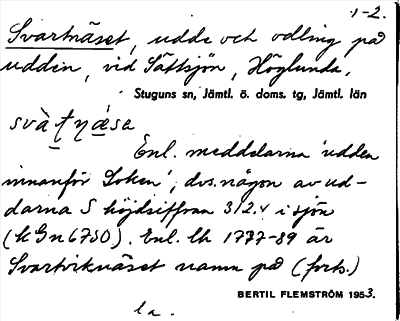 1-2.
Svartnäset, udde och odling på
udden, vid Sättsjön, Höglunda,
Stuguns sn, Jämtl. ö. doms. tg, Jämtl. län
Enl. meddelarna 'udden
innanför Loken'; dvs. någon av ud-
darna S höjdsiffran 312.4 i sjön
(kGn6750). Enl. lh 1777-89 är
Svartviknäset namn på (forts.)
BERTIL FLEMSTRÖM 1953.